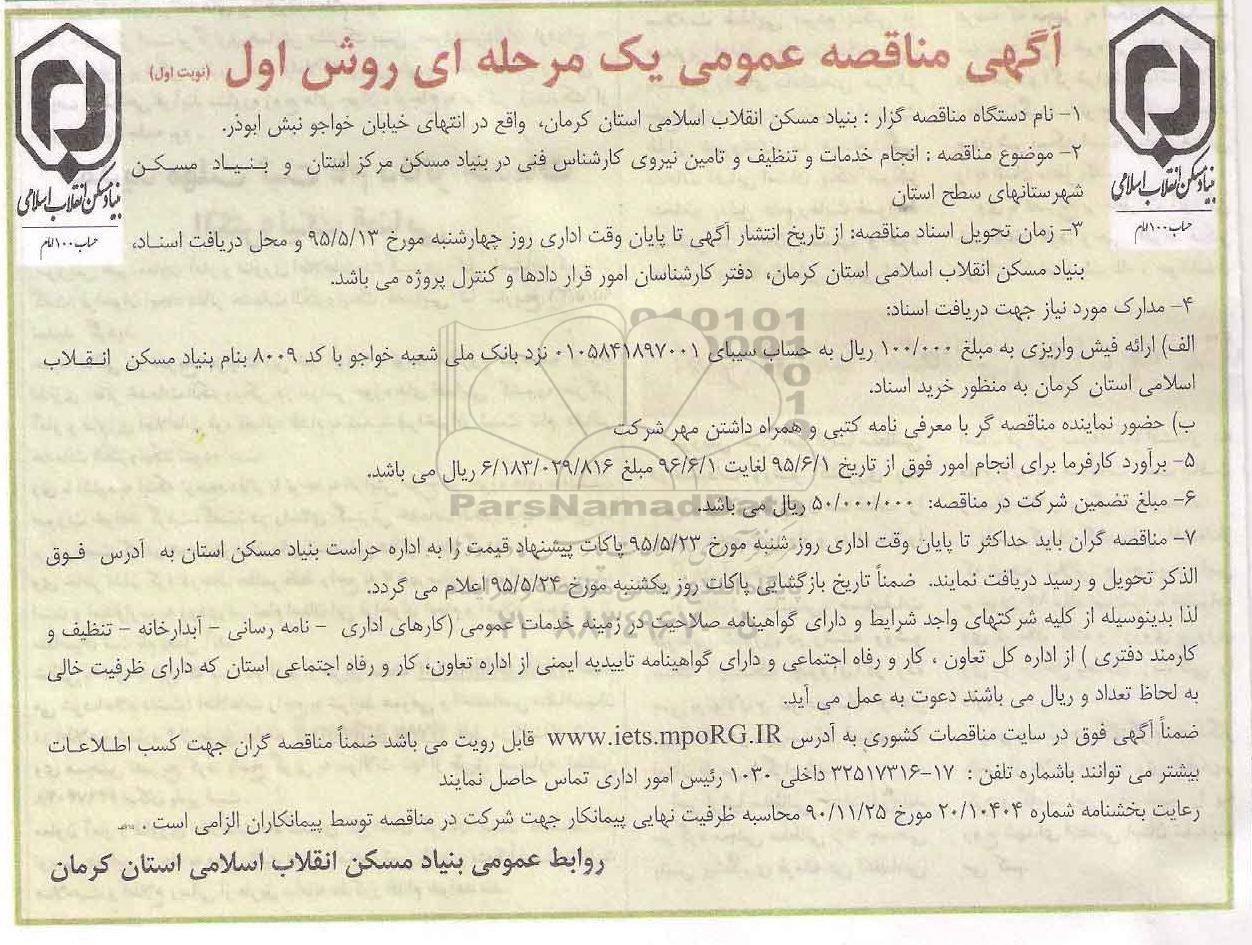 آگهی مناقصه عمومی یک مرحله ای روش اول (نوبت اول)
بنیاد مسکن انقلاب اسلامی
حساب ۱۰۰ امام
بنیاد مسکن انقلاب اسلامی
حساب ۱۰۰ امام
۱- نام دستگاه مناقصه گزار : بنیاد مسکن انقلاب اسلامی استان کرمان، واقع در انتهای خیابان خواجو نبش ابوذر.
۲- موضوع مناقصه : انجام خدمات و تنظیف و تامین نیروی کارشناس فنی در بنیاد مسکن مرکز استان و بنیاد مسکن
شهرستانهای سطح استان
۳- زمان تحویل اسناد مناقصه: از تاریخ انتشار آگهی تا پایان وقت اداری روز چهارشنبه مورخ ۹۵/۵/۱۳ و محل دریافت اسناد،
بنیاد مسکن انقلاب اسلامی استان کرمان، دفتر کارشناسان امور قرار دادها و کنترل پروژه می باشد.
۴- مدارک مورد نیاز جهت دریافت اسناد:
الف) ارائه فیش واریزی به مبلغ ۱۰۰/۰۰۰ ریال به حساب سیبای ۰۱۰۵۸۴۱۸۹۷۰۰۱ نزد بانک ملی شعبه خواجو با کد ۸۰۰۹ بنام بنیاد مسکن انقلاب
اسلامی استان کرمان به منظور خرید اسناد.
ب) حضور نماینده مناقصه گر با معرفی نامه کتبی و همراه داشتن مهر شرکت
۵- برآورد کارفرما برای انجام امور فوق از تاریخ ۹۵/۶/۱ لغایت ۹۶/۶/۱ مبلغ ۶/۱۸۳/۰۲۹/۸۱۶ ریال می باشد.
ParsNamadData
۶- مبلغ تضمین شرکت در مناقصه: ۵۰/۰۰۰/۰۰۰ ریال می باشد.
۷- مناقصه گران باید حداکثر تا پایان وقت اداری روز شنبه مورخ ۹۵/۵/۲۳ پاکات پیشنهاد قیمت را به اداره حراست بنیاد مسکن استان به آدرس فوق
الذکر تحویل و رسید دریافت نمایند. ضمناً تاریخ بازگشایی پاکات روز یکشنبه مورخ ۹۵/۵/۲۴ اعلام می گردد.
لذا بدینوسیله از کلیه شرکتهای واجد شرایط و دارای گواهینامه صلاحیت در زمینه خدمات عمومی (کارهای اداری - نامه رسانی - آبدارخانه - تنظیف و
کارمند دفتری ) از اداره کل تعاون ، کار و رفاه اجتماعی و دارای گواهینامه تاییدیه ایمنی از اداره تعاون، کار و رفاه اجتماعی استان که دارای ظرفیت خالی
به لحاظ تعداد و ریال می باشند دعوت به عمل می آید.
ضمناً آگهی فوق در سایت مناقصات کشوری به آدرس www.iets.mpoRG.IR قابل رویت می باشد ضمناً مناقصه گران جهت کسب اطلاعات
بیشتر می توانند باشماره تلفن : ۱۷-۳۲۵۱۷۳۱۶ داخلی ۱۰۳۰ رئیس امور اداری تماس حاصل نمایند
رعایت بخشنامه شماره ۲۰/۱۰۴۰۴ مورخ ۹۰/۱۱/۲۵ محاسبه ظرفیت نهایی پیمانکار جهت شرکت در مناقصه توسط پیمانکاران الزامی است .
روابط عمومی بنیاد مسکن انقلاب اسلامی استان کرمان